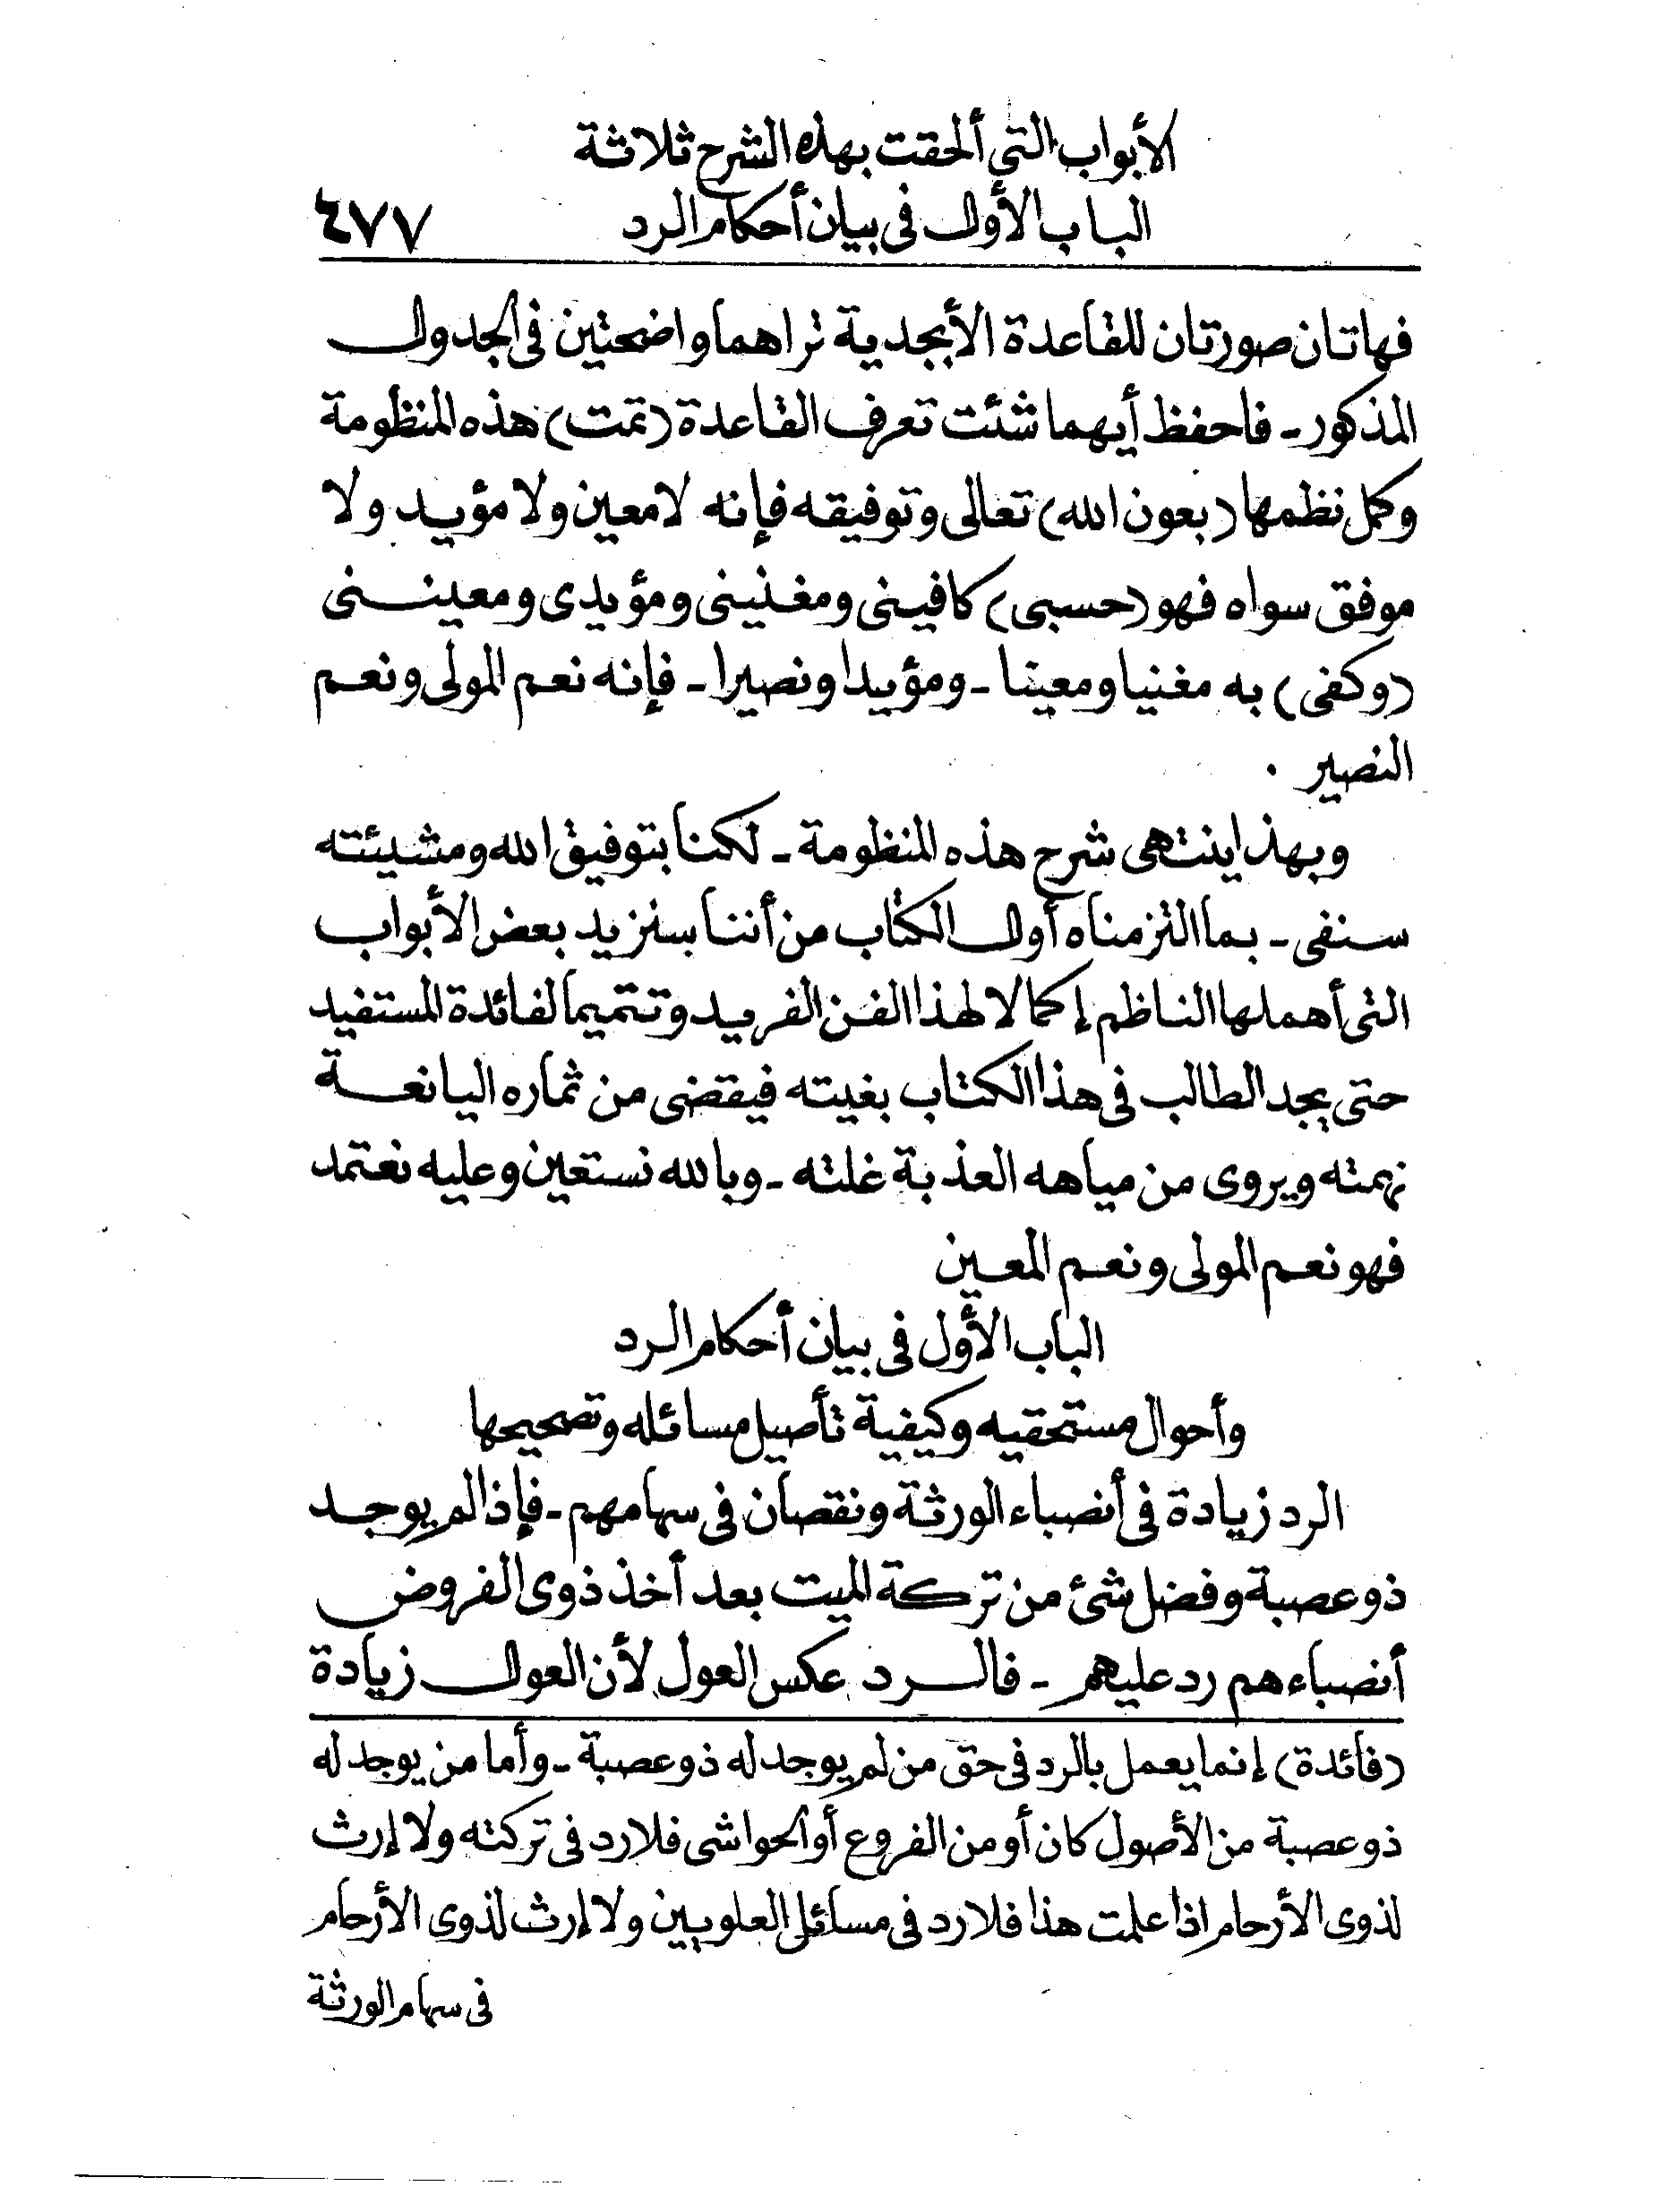 الأبواب التي ألحقت بهذه الشرح ثلاثة
الباب الأول في بيان أحكام الرد
٤٧٧
فهاتان صورتان للقاعدة الأبجدية تراهما واضحتين فى الجدول
المذكور - فاحفظ أيهما شئت تعرف القاعدة (تمت) هذه المنظومة
وكمل نظمها (بعون الله) تعالى وتوفيقه فإنه لا معين ولا مؤيد ولا
موفق سواه فهو (حسبى) كافينى ومغنينى ومؤيدى ومعينى
(وكفى) به مغنيا ومعينا - ومؤيدا ونصيرا - فإنه نعم المولى ونعم
النصير .
وبهذا ينتهى شرح هذه المنظومة - لكنا بتوفيق الله ومشيئته
سنفى - بما التزمناه أول الكتاب من أننا سنزيد بعض الأبواب
التى أهملها الناظم إكمالا لهذا الفن الفريد وتتميما لفائدة المستفيد
حتى يجد الطالب فى هذا الكتاب بغيته فيقضى من ثماره اليانعة
نهمته ويروى من مياهه العذبة غلته - وبالله نستعين وعليه نعتمد
فهو نعم المولى ونعم المعين
الباب الأول فى بيان أحكام الرد
وأحوال مستحقيه وكيفية تأصيل مسائله وتصحيحها
الرد زيادة فى أنصباء الورثة ونقصان فى سهامهم - فإذا لم يوجد
ذو عصبة وفضل شئ من تركة الميت بعد أخذ ذوى الفروض
أنصباءهم رد عليهم - فالرد عكس العول لأن العول زيادة
(فائدة) إنما يعمل بالرد فى حق من لم يوجد له ذو عصبة - وأما من يوجد له
ذو عصبة من الأصول كان أو من الفروع أو الحواشى فلا رد فى تركته ولا إرث
لذوى الأرحام اذا علمت هذا فلا رد فى مسائل العلويين ولا إرث لذوى الأرحام
فى سهام الورثة